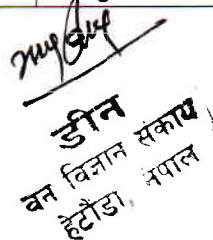 डीन
वन विज्ञान संकाय
हेटौंडा, नेपाल